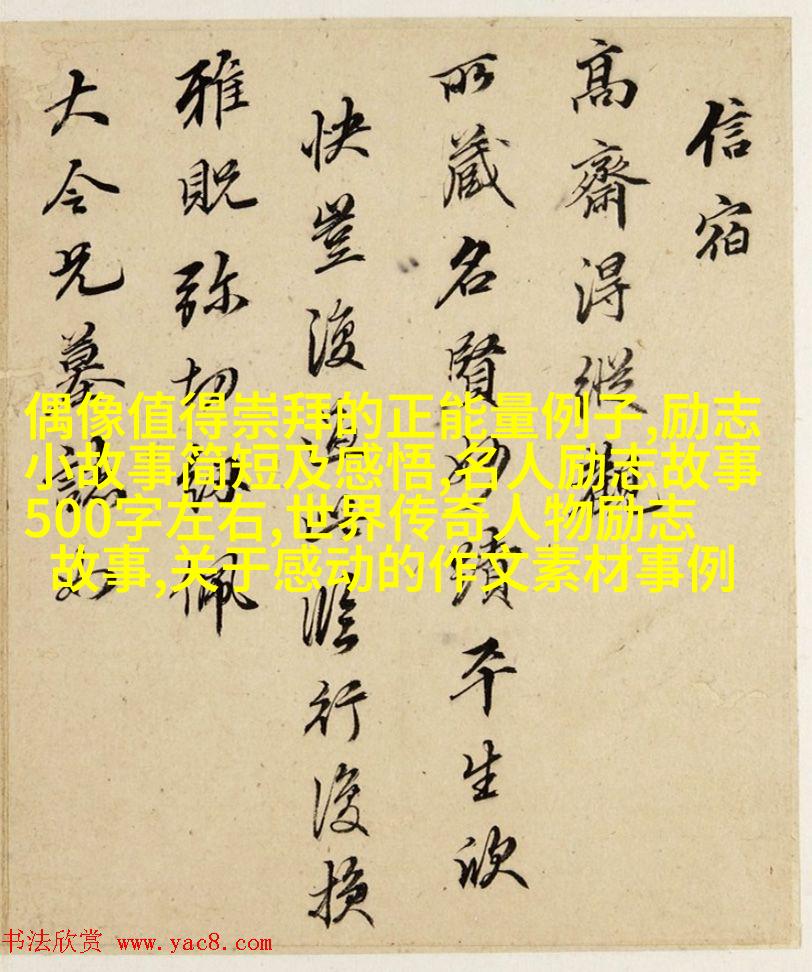 信宿
高齋得縱
所藏名賢妙蹟平生欣
快豈復過此臨行復損
雅貺弥切銘佩
大令兄墓誌
偶像值得崇拜的正能量例子,励志
小故事简短及感悟,名人励志故事
500字左右,世界传奇人物励志
故事,关于感动的作文素材事例
书法欣赏 www.yac8.com